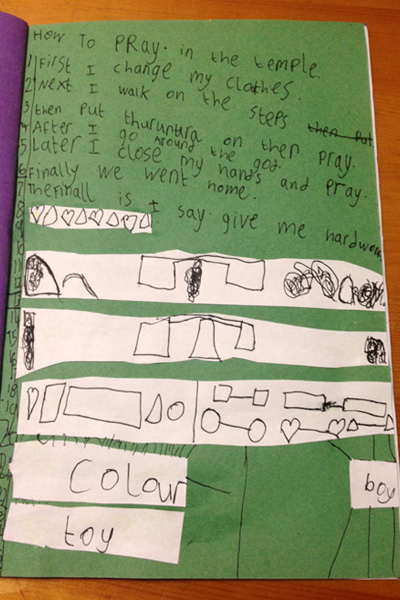 How To PRay. in the temple.
1 First I change my clothes.
2 Next I walk on the steps then put
3 then put thurunura on then pray.
4 After I go around the god.
5 Later I close my hands and pray.
6 Finally we went home.
7 The finall is I say. give me hardwork
8
9
10
11
12
13
14
15
16
17
18
19
20
colour
boy
toy